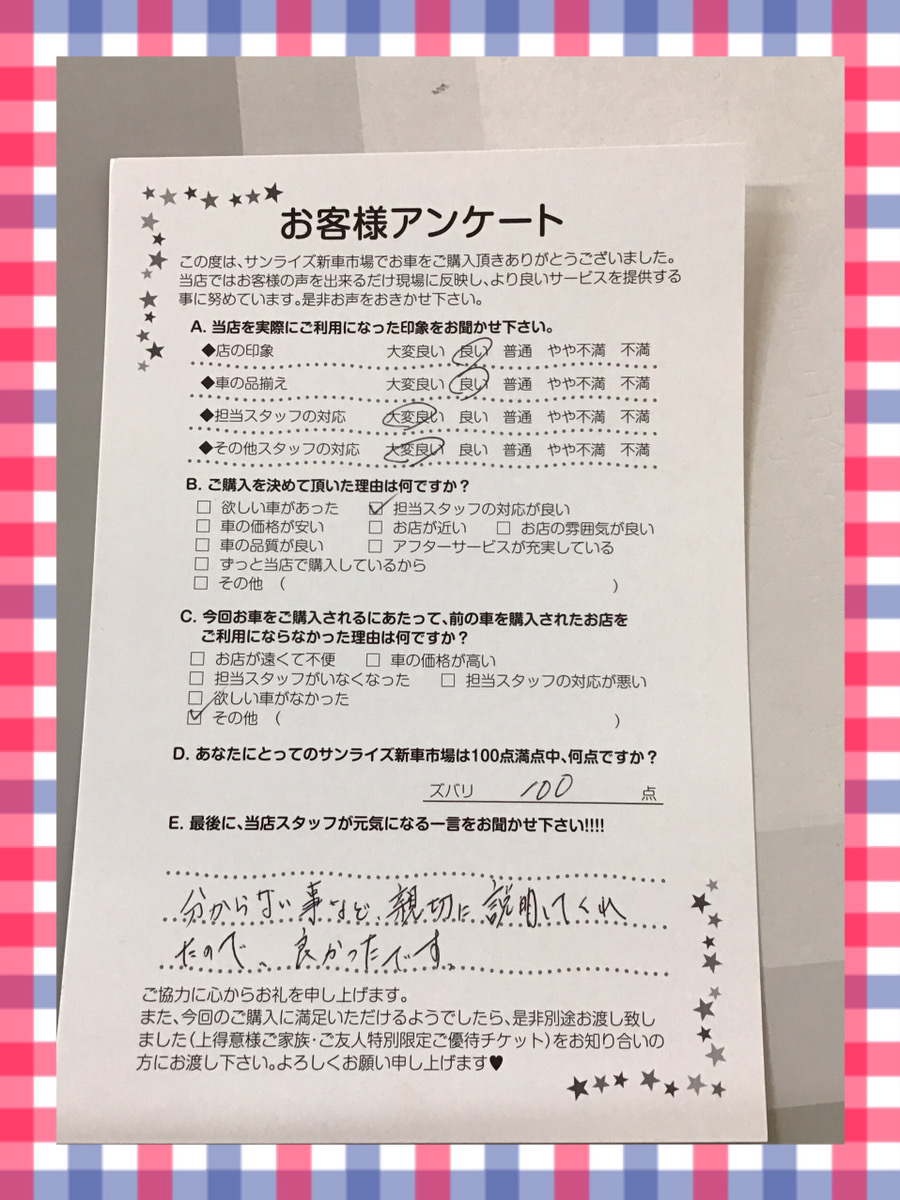 お客様アンケート
この度は、サンライズ新車市場でお車をご購入頂きありがとうございました。
当店ではお客様の声を出来るだけ現場に反映し、より良いサービスを提供する
事に努めています。是非お声をおきかせ下さい。
A. 当店を実際にご利用になった印象をお聞かせ下さい。
◆店の印象 大変良い 良い 普通 やや不満 不満
◆車の品揃え 大変良い 良い 普通 やや不満 不満
◆担当スタッフの対応 大変良い 良い 普通 やや不満 不満
◆その他スタッフの対応 大変良い 良い 普通 やや不満 不満
B. ご購入を決めて頂いた理由は何ですか?
□ 欲しい車があった ☑ 担当スタッフの対応が良い
□ 車の価格が安い □ お店が近い □ お店の雰囲気が良い
□ 車の品質が良い □ アフターサービスが充実している
□ ずっと当店で購入しているから
□ その他 ( )
C. 今回お車をご購入されるにあたって、前の車を購入されたお店を
ご利用にならなかった理由は何ですか?
□ お店が遠くて不便 □ 車の価格が高い
□ 担当スタッフがいなくなった □ 担当スタッフの対応が悪い
□ 欲しい車がなかった
☑ その他 ( )
D. あなたにとってのサンライズ新車市場は100点満点中、何点ですか?
ズバリ 100 点
E. 最後に、当店スタッフが元気になる一言をお聞かせ下さい!!!!
分からない事など、親切に説明してくれ
たので、良かったです。
ご協力に心からお礼を申し上げます。
また、今回のご購入に満足いただけるようでしたら、是非別途お渡し致し
ました(上得意様ご家族・ご友人特別限定ご優待チケット)をお知り合いの
方にお渡し下さい。よろしくお願い申し上げます♥